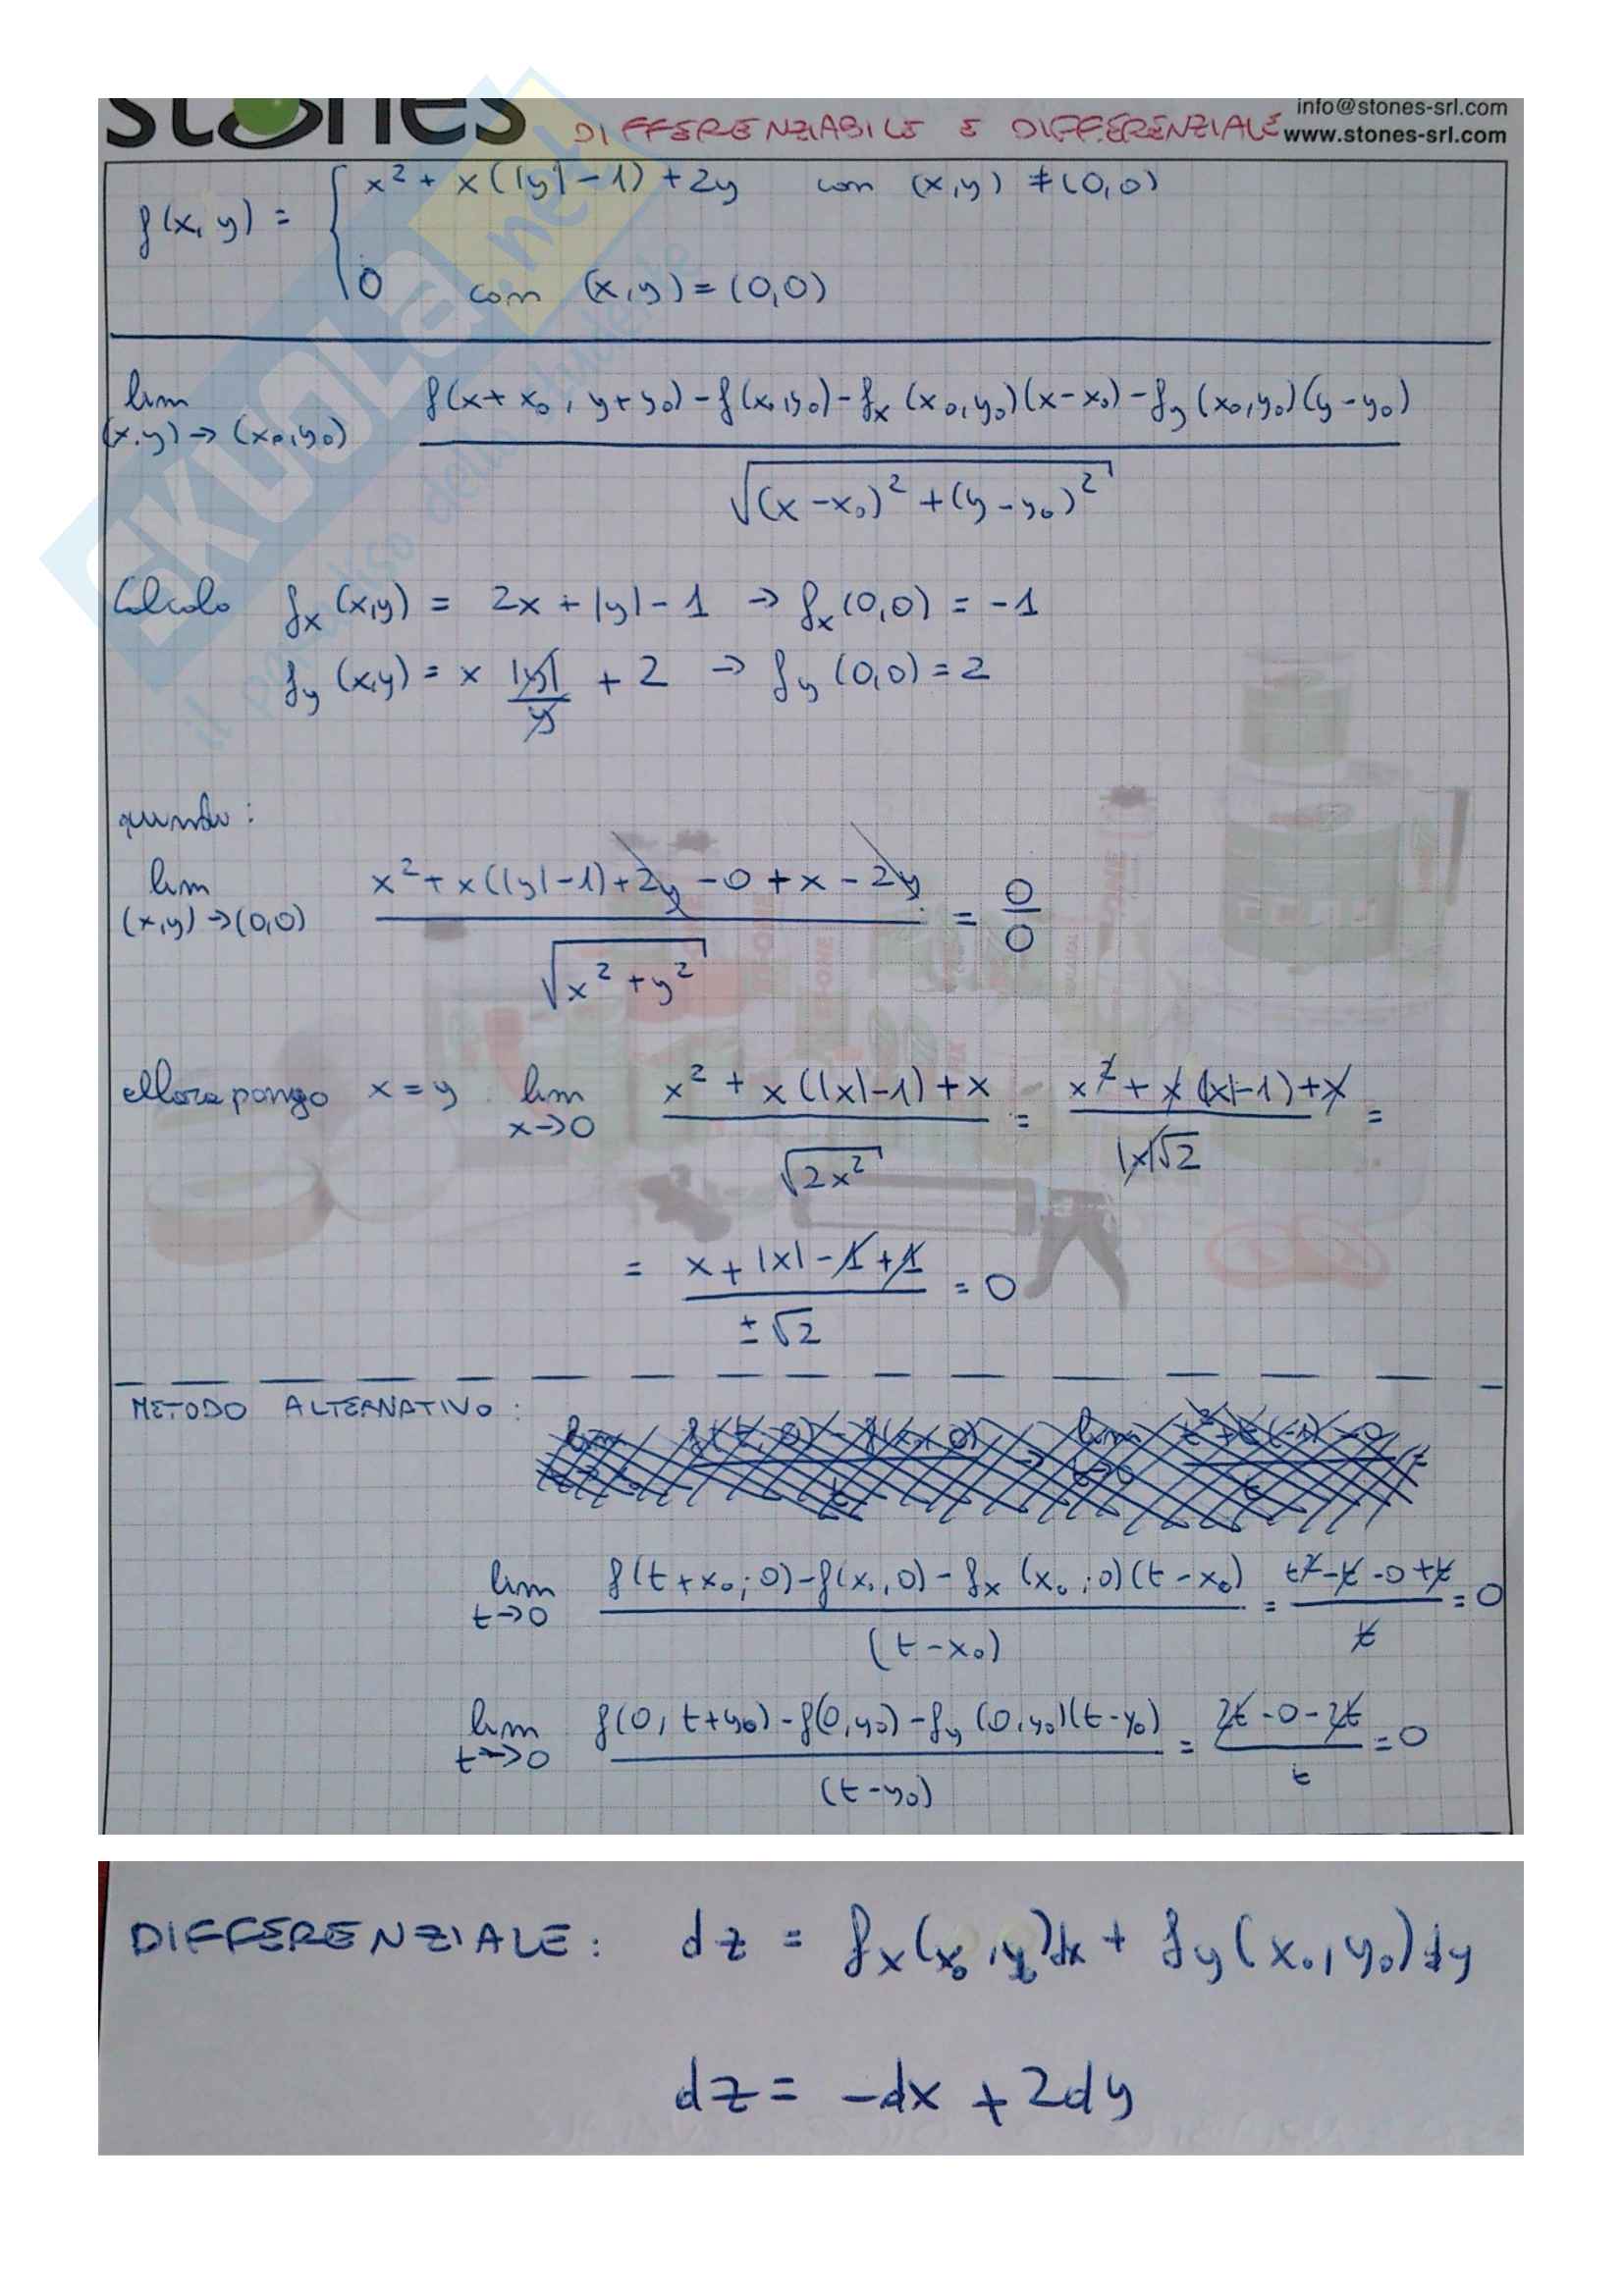 stones
info@stones-srl.com
DIFFERENZIABILE E DIFFERENZIALE www.stones-srl.com
f(x,y) = { x² + x(|y|-1) + 2y con (x,y) ≠ (0,0)
0 con (x,y) = (0,0)
lim (x,y)→(x₀,y₀) f(x+x₀, y+y₀) - f(x₀,y₀) - fx (x₀,y₀)(x-x₀) - fy (x₀,y₀)(y-y₀)
√(x-x₀)² + (y-y₀)²
Calcolo fx (x,y) = 2x + |y| - 1 → fx (0,0) = -1
fy (x,y) = x |y|/y + 2 → fy (0,0) = 2
quindi:
lim (x,y)→(0,0) x² + x(|y|-1) + 2y - 0 + x - 2y / √x² + y² = 0/0
allora pongo x = y lim x→0 x² + x(|x|-1) + x / √2x² = x² + x(|x|-1) + x / |x|√2 =
= x + |x| - 1 + 1 / ±√2 = 0
METODO ALTERNATIVO:
lim t→0 f(t+x₀; 0) - f(x₀, 0) - fx (x₀; 0)(t-x₀) / (t-x₀) = t² - t - 0 + t / t = 0
lim t→0 f(0, t+y₀) - f(0,y₀) - fy (0,y₀)(t-y₀) / (t-y₀) = 2t - 0 - 2t / t = 0
DIFFERENZIALE: dz = fx(x₀,y₀)dx + fy(x₀,y₀)dy
dz = -dx + 2dy
SKUOLA.net
il paradiso dello studente